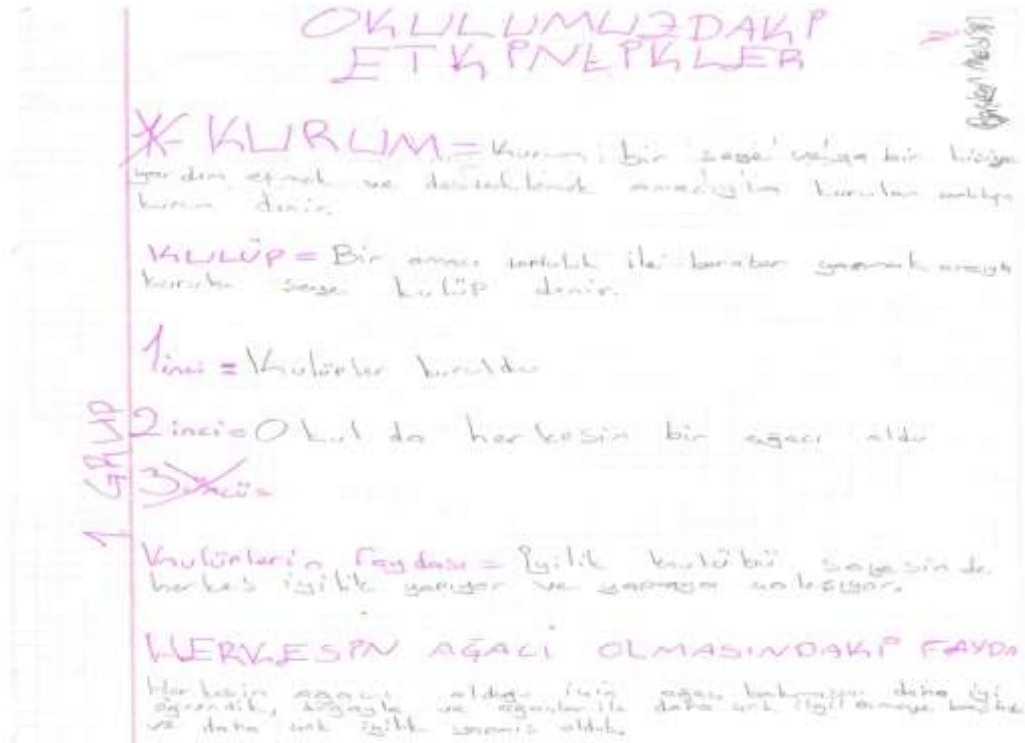 OKULUMUZDAKİ
ETKİNLİKLER
* KURUM = Kurum; bir şeye veya bir kişiye
yardım etmek ve desteklemek amacıyla kurulan
kurum denir.
KULÜP = Bir amacı ile beraber yapmak amacıyla
kurulu şeye kulüp denir.
1inci = Kulüpler kuruldu
2inci = Okulda herkesin bir ağacı oldu
3üncü =
1. GRUP
Kulüplerin faydası = İyilik kulübü sayesinde
herkes iyilik yapıyor ve yapmaya çalışıyor.
HERKESİN AĞACI OLMASINDAKİ FAYDA
Herkesin ağacı olduğu için ağaç bakmayı daha iyi
öğrendik, doğayla ve ağaçlar ile daha çok ilgilenmeye
ve daha çok iyilik yapmış olduk.